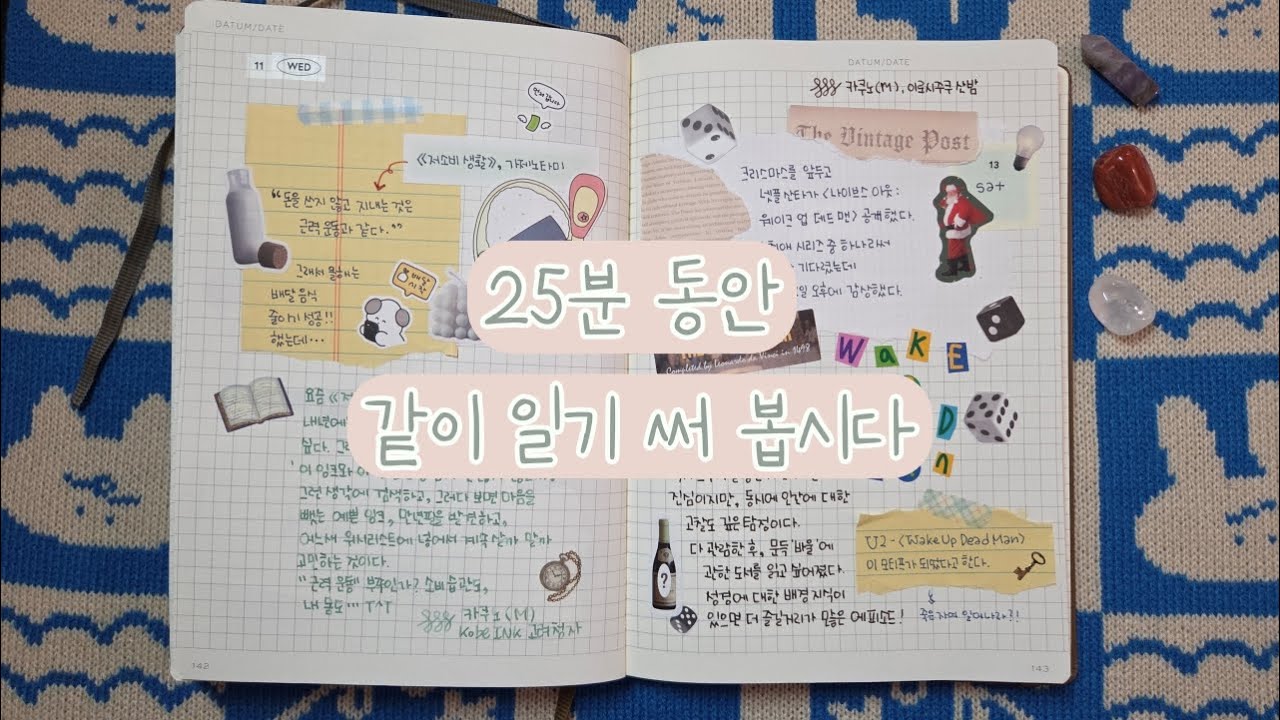 DATUM/DATE
11 WED
먼저 갑니다
《저소비 생활》, 가제노타미
"돈을 쓰지 않고 지내는 것은
근력 운동과 같다."
그래서 올해는
배달 음식
줄이기 성공!!
했는데…
배달
요즘
내년에
싶다. 그
이 잉크와
그런 생각에 검색하고, 그러다 보면 마음을
뺏는 예쁜 잉크, 만년필을 발견하고,
어느새 위시리스트에 넣어서 계속 살까 말까
고민하는 것이다.
"근력 운동" 부족인가? 소비 습관도,
내 몸도… TAT
카쿠노(M)
Kobe INK 고려청자
142
25분 동안
같이 일기 써 봅시다
DATUM/DATE
카쿠노(M), 이로시주쿠 산밤
The Vintage Post
13
sat
크리스마스를 앞두고
넷플 산타가 <나이브스 아웃:
웨이크 업 데드 맨> 공개했다.
시리즈 중 하나라서
기다렸는데
일 오후에 감상했다.
Completed by Leonardo da Vinci in 1498
WaKE
D
진심이지만, 동시에 인간에 대한
고찰도 깊은 탐정이다.
다 관람한 후, 문득 '바울'에
관한 도서를 읽고 싶어졌다.
성경에 대한 배경 지식이
있으면 더 즐길거리가 많은 에피소드!
U2 - <Wake Up Dead Man>
이 모티프가 되었다고 한다.
죽은자여 일어나라?!
?
143